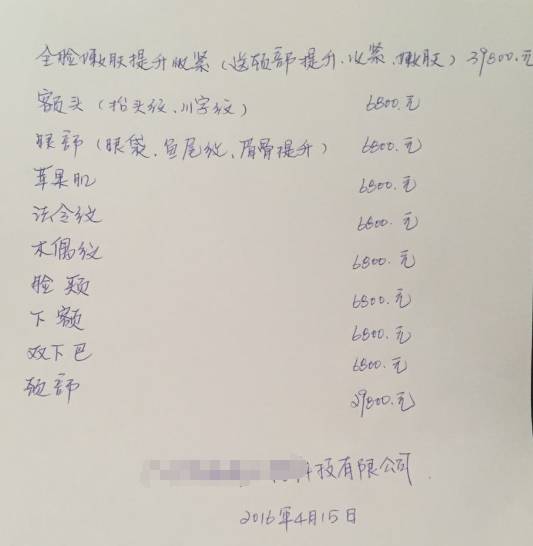 全脸嫩肤提升收紧(送颈部提升、收紧、嫩肤)39800.元
额头(抬头纹、川字纹) 6800.元
眼部(眼袋、鱼尾纹、眉骨提升) 6800.元
苹果肌 6800.元
法令纹 6800.元
木偶纹 6800.元
脸颊 6800.元
下额 6800.元
双下巴 6800.元
颈部 29800.元
科技有限公司
2016年4月15日